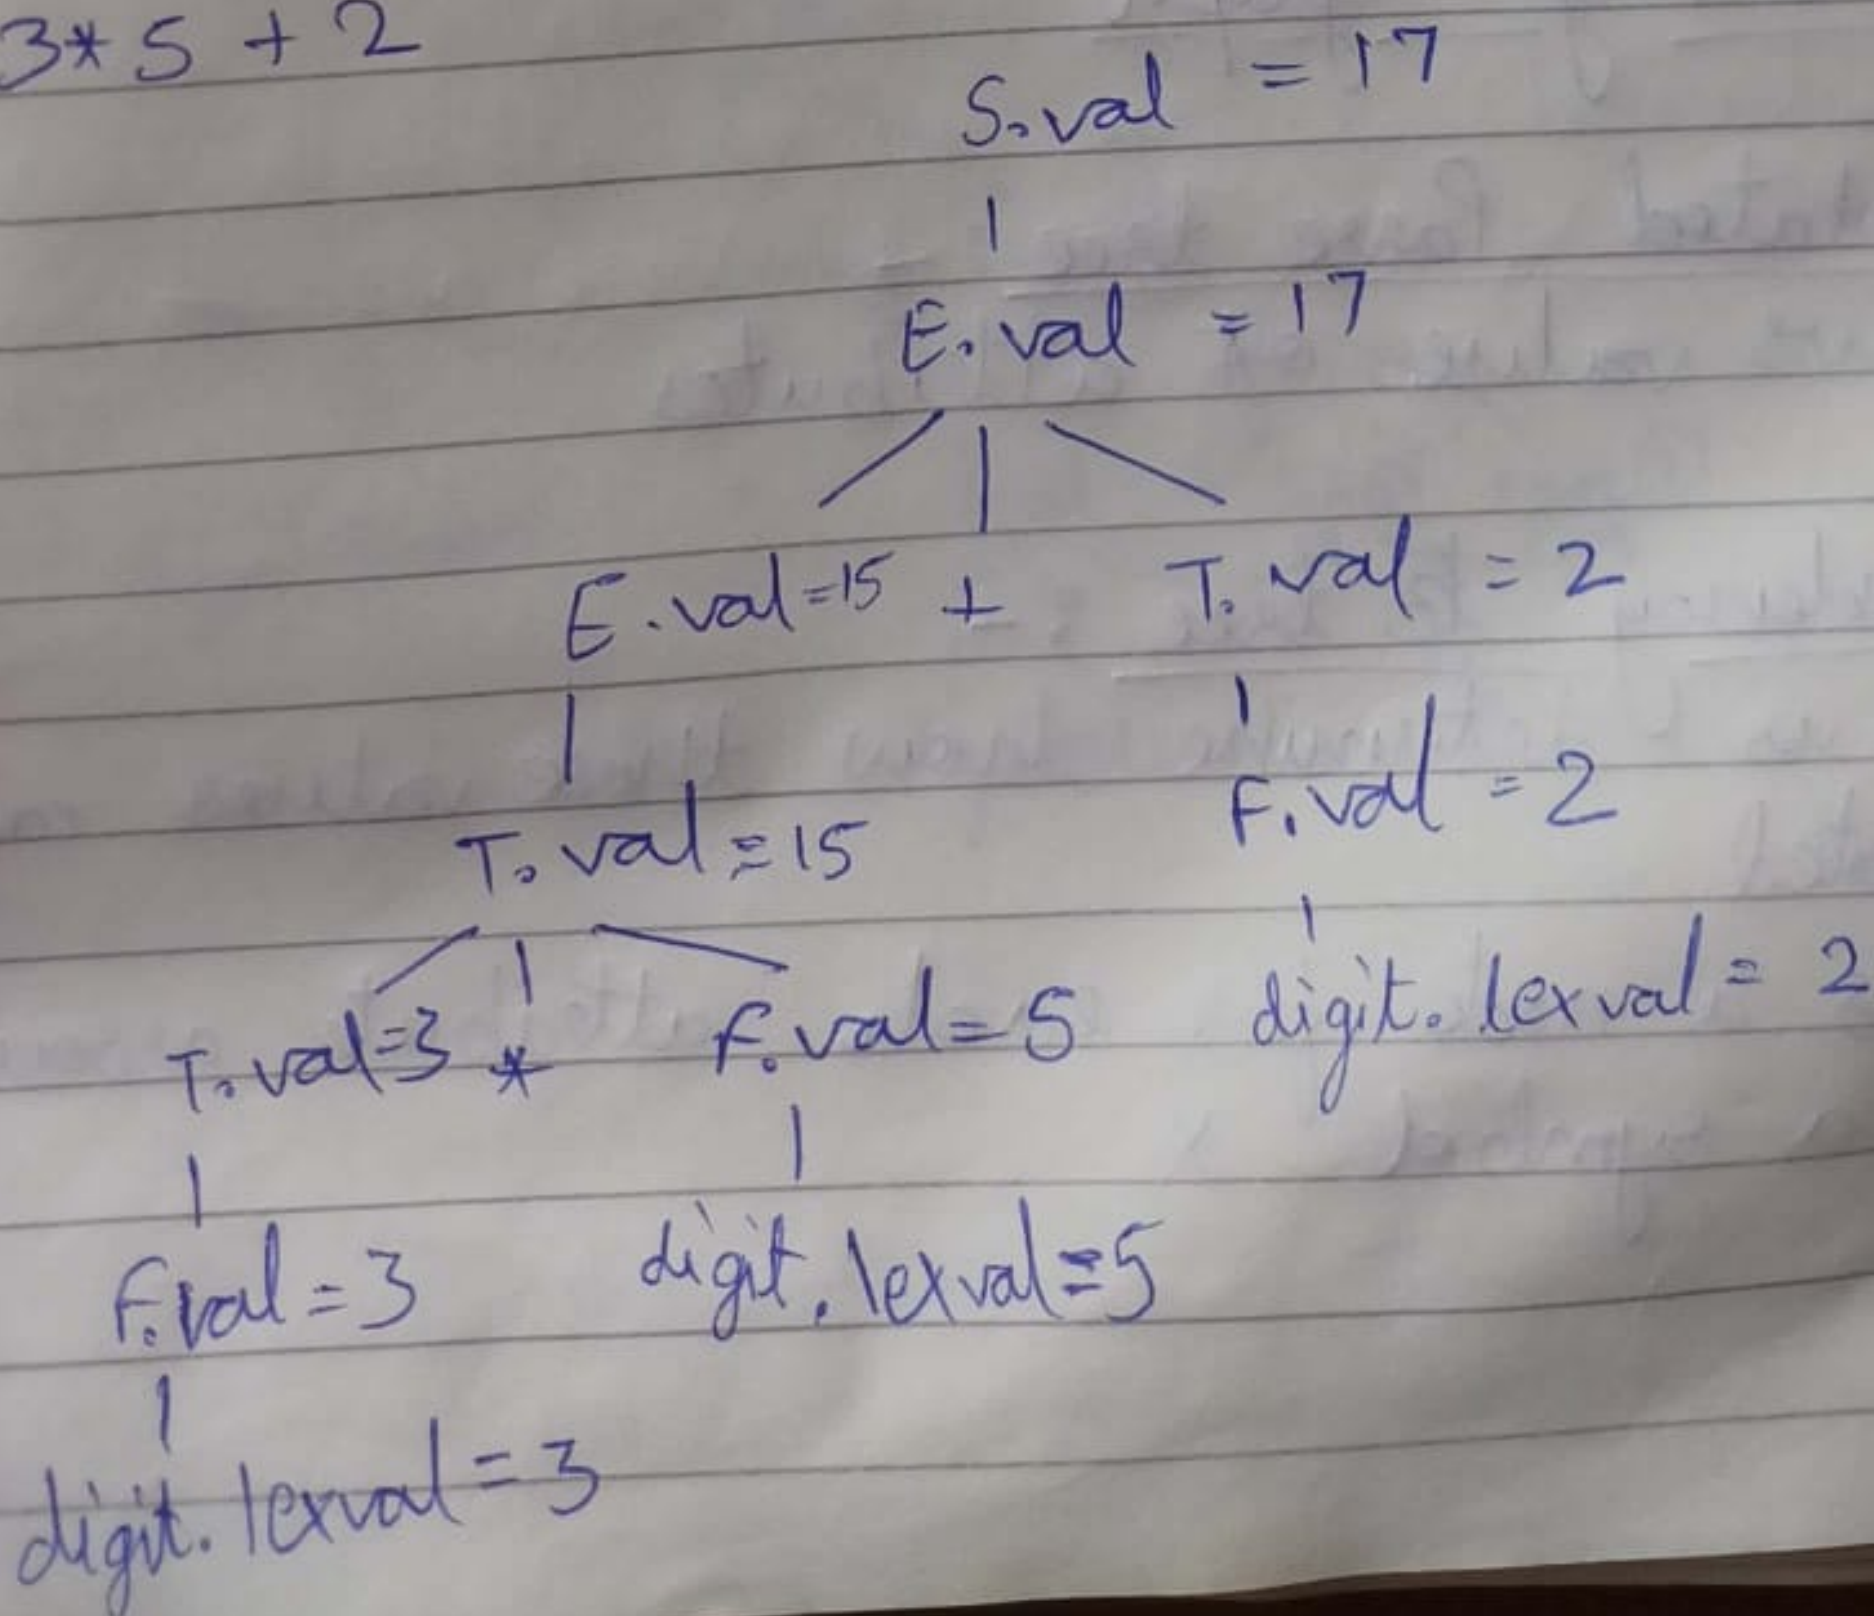 3* 5 + 2
S.val = 17
E.val = 17
E.val=15 + T.val = 2
T.val=15 F.val = 2
T.val=3 * F.val=5 digit.lexval = 2
F.val=3 digit.lexval=5
digit.lexval=3